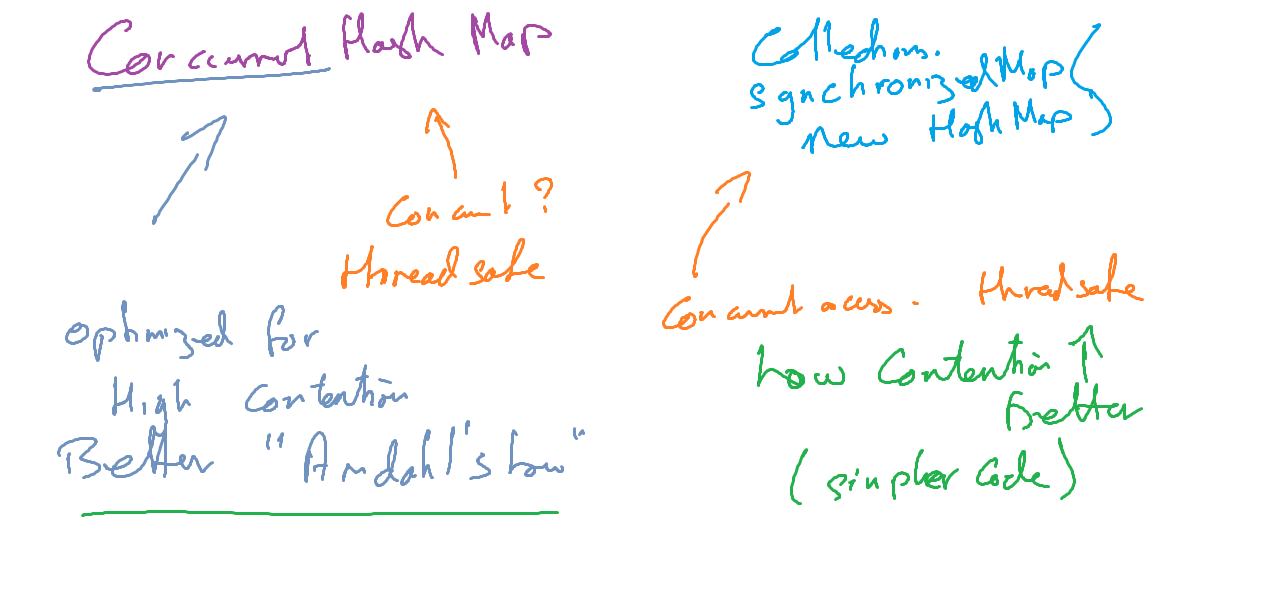 Concurrent Hash Map
Concurrent ?
thread safe
optimized for
High Contention
Better "Amdahl's Law"
Collections.
synchronizedMap(
new HashMap)
Concurrent access. thread safe
Low Contention
Better
(simpler code)